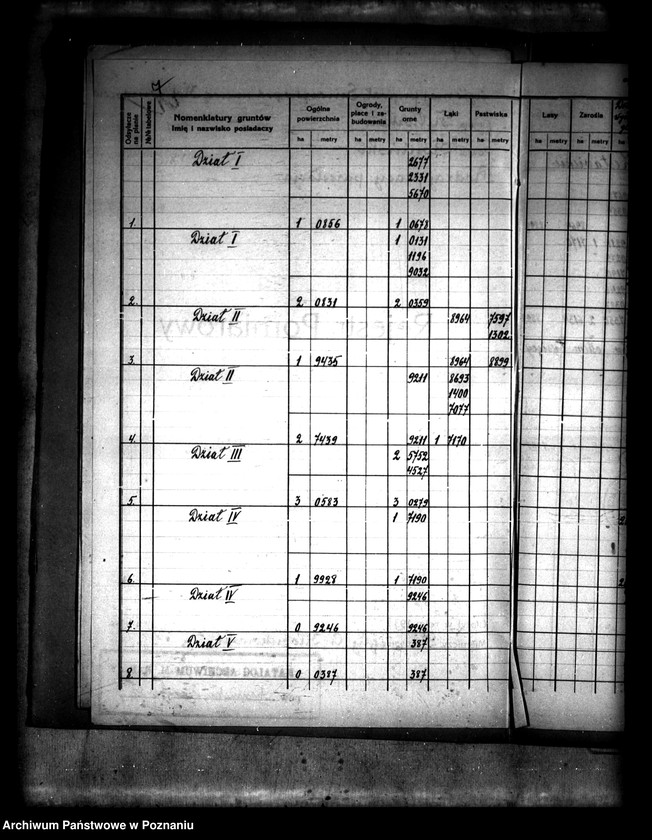 Odsyłacze na planie
№№ tabelowe
Nomenklatury gruntów
Imię i nazwisko posiadaczy
Ogólne powierzchnia
Ogrody, place i zabudowania
Grunty orne
Łąki
Pastwiska
Lasy
Zarośla
ha metry ha metry ha metry ha metry ha metry ha metry ha metry
Dział I 2677
2331
5670
1. 1 0856 1 0678
Dział I 1 0131
1196
9032
2. 2 0831 2 0359
Dział II 8964 7597
1302
3. 1 9435 8964 8899
Dział II 9211 8693
1400
7077
4. 2 7439 9211 1 7170
Dział III 2 5752
4527
5. 3 0583 3 0279
Dział IV 1 7190
6. 1 9928 1 7190
Dział IV 9246
7. 0 9246 9246
Dział V 387
8. 0 0387 387
Archiwum Państwowe w Poznaniu